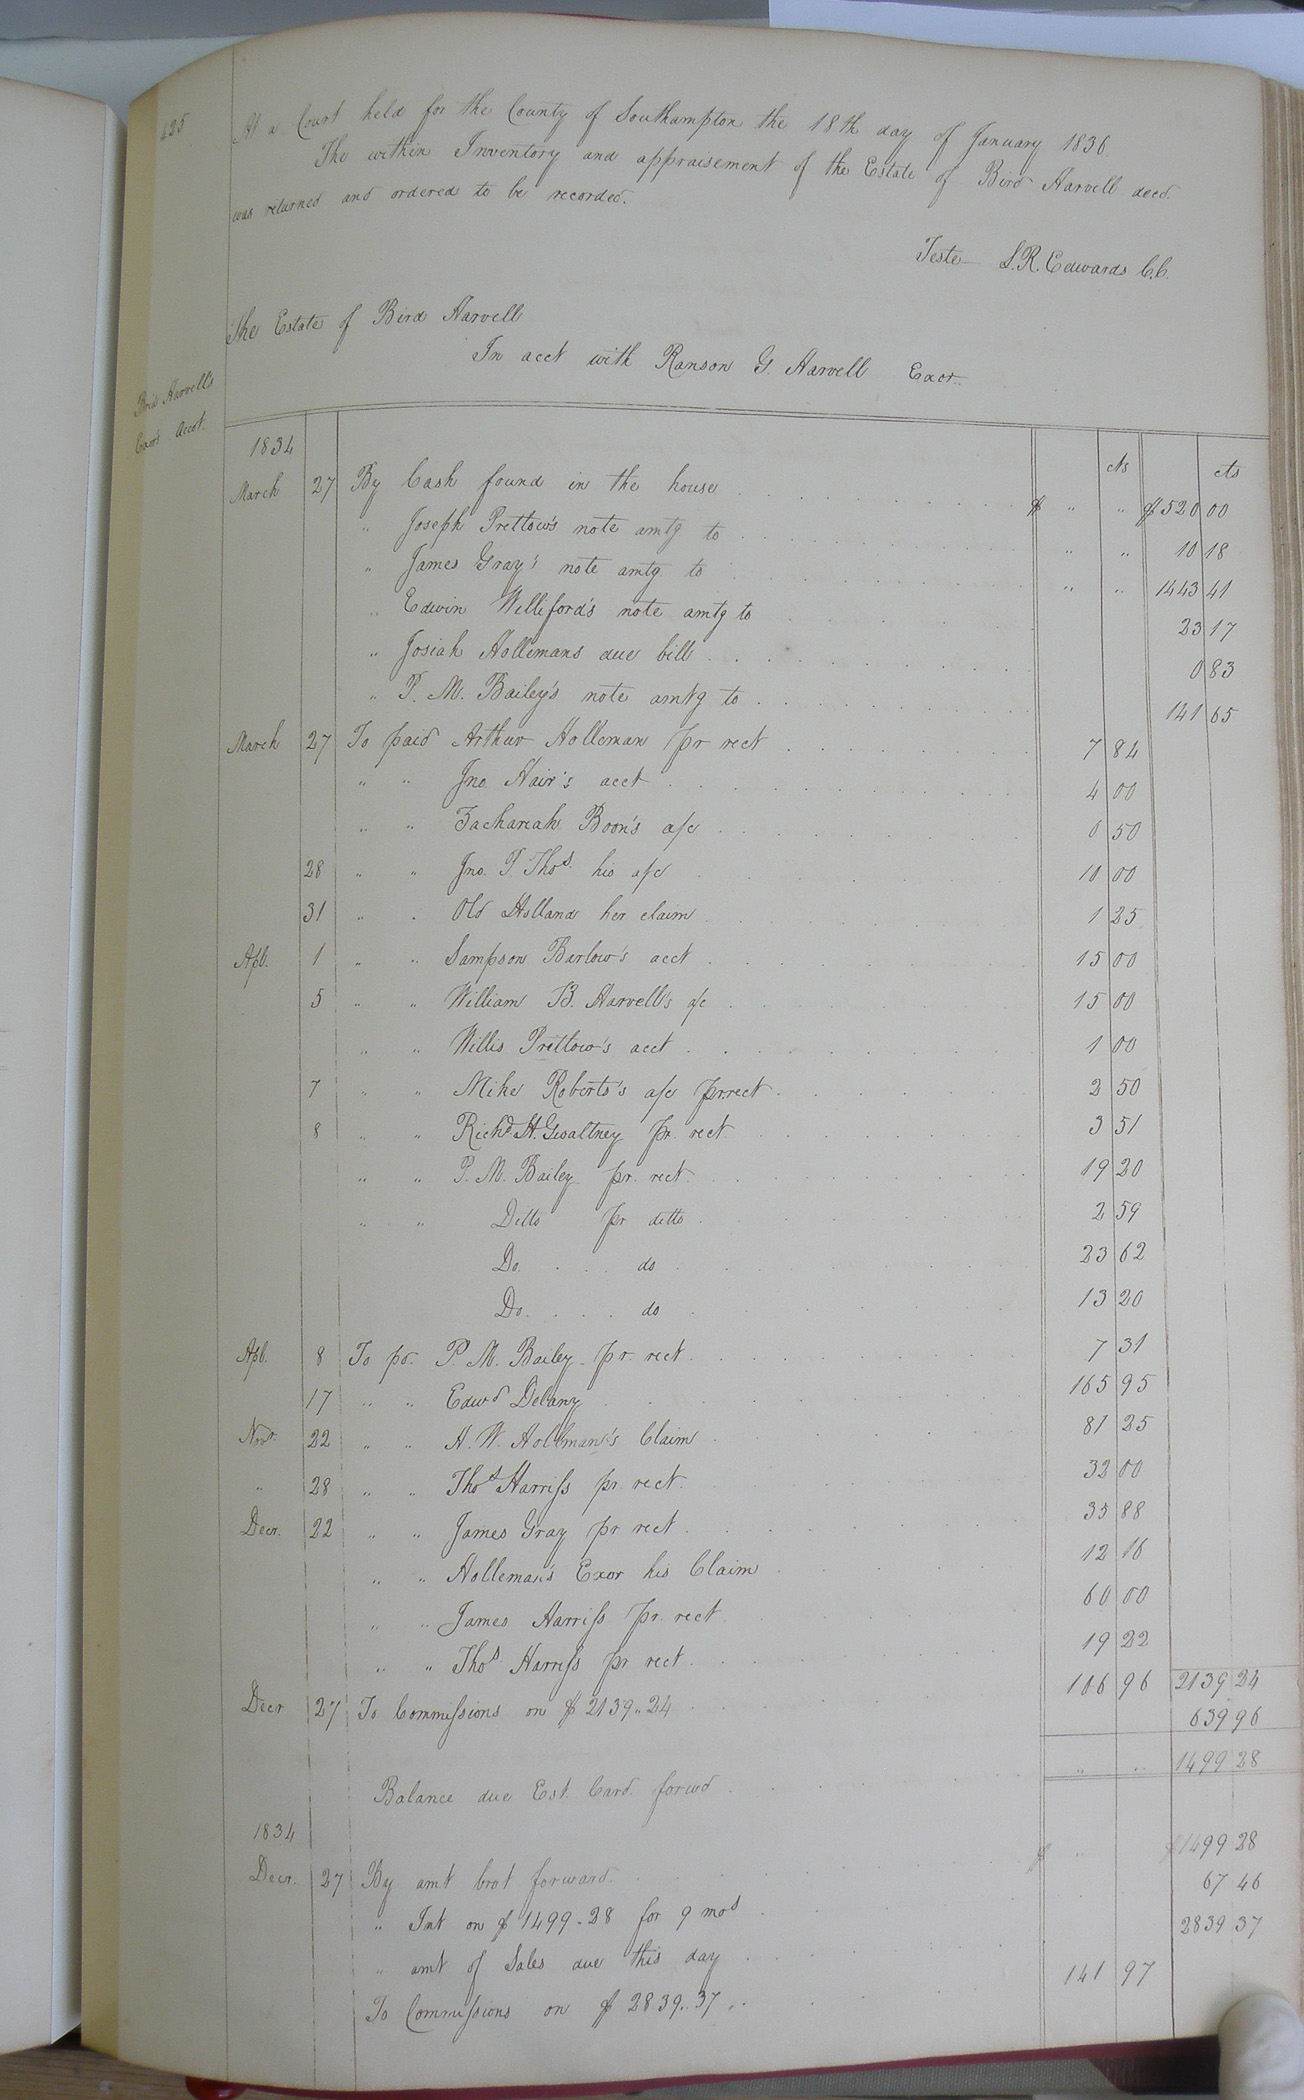 425
At a Court held for the County of Southampton the 18th day of January 1836.
The within Inventory and appraisement of the Estate of Bird Harvell decd.
was returned and ordered to be recorded.
Teste L.R. Edwards C.C.
The Estate of Bird Harvell
In acct with Ranson G. Harvell Exor.
Bird Harvell's
Exors Accot.
1834 cts cts
March 27 By Cash found in the house $ " " $520 00
" Joseph Prettow's note amtg to " " 10 18
" James Gray's note amtg to " " 1443 41
" Edwin Williford's note amtg to 23 17
" Josiah Hollemans due bill 0 83
" P. M. Bailey's note amtg to 141 65
March 27 To paid Arthur Holleman pr rect 7 84
" " Jno. Hair's acct 4 00
" " Zachariah Boon's a/c 0 50
28 " " Jno. P. Thos. his a/c 10 00
31 " " Old Holland her claim 1 25
Apl. 1 " " Sampson Barlow's acct 15 00
5 " " William B. Harvell's a/c 15 00
" " Willis Prettow's acct 1 00
7 " " Mike Roberts's a/c pr rect 2 50
8 " " Richd H. Gwaltney pr. rect 3 51
" " P. M. Bailey pr. rect. 19 20
" " Ditto pr ditto 2 59
Do. do 23 62
Do. do 13 20
Apl. 8 To pd. P. M. Bailey pr. rect. 7 31
17 " " Edwd Delany 165 95
Novr. 22 " " H. W. Holleman's Claim 81 25
" 28 " " Thos Harriss pr. rect. 32 00
Decr. 22 " " James Gray pr rect. 35 88
" " Holleman's Exor his Claim 12 16
" " James Harriss pr. rect 60 00
" " Thos Harriss pr rect. 19 22
Decr 27 To Commissions on $2139..24 106 96 2139 24
639 96
Balance due Est. Card. forwd " " 1499 28
1834
Decr. 27 By amt brot forward. $ " $1499 28
" Int on $1499.28 for 9 mos 67 46
" amt of Sales due this day 2839 37
To Commissions on $2839..37 141 97